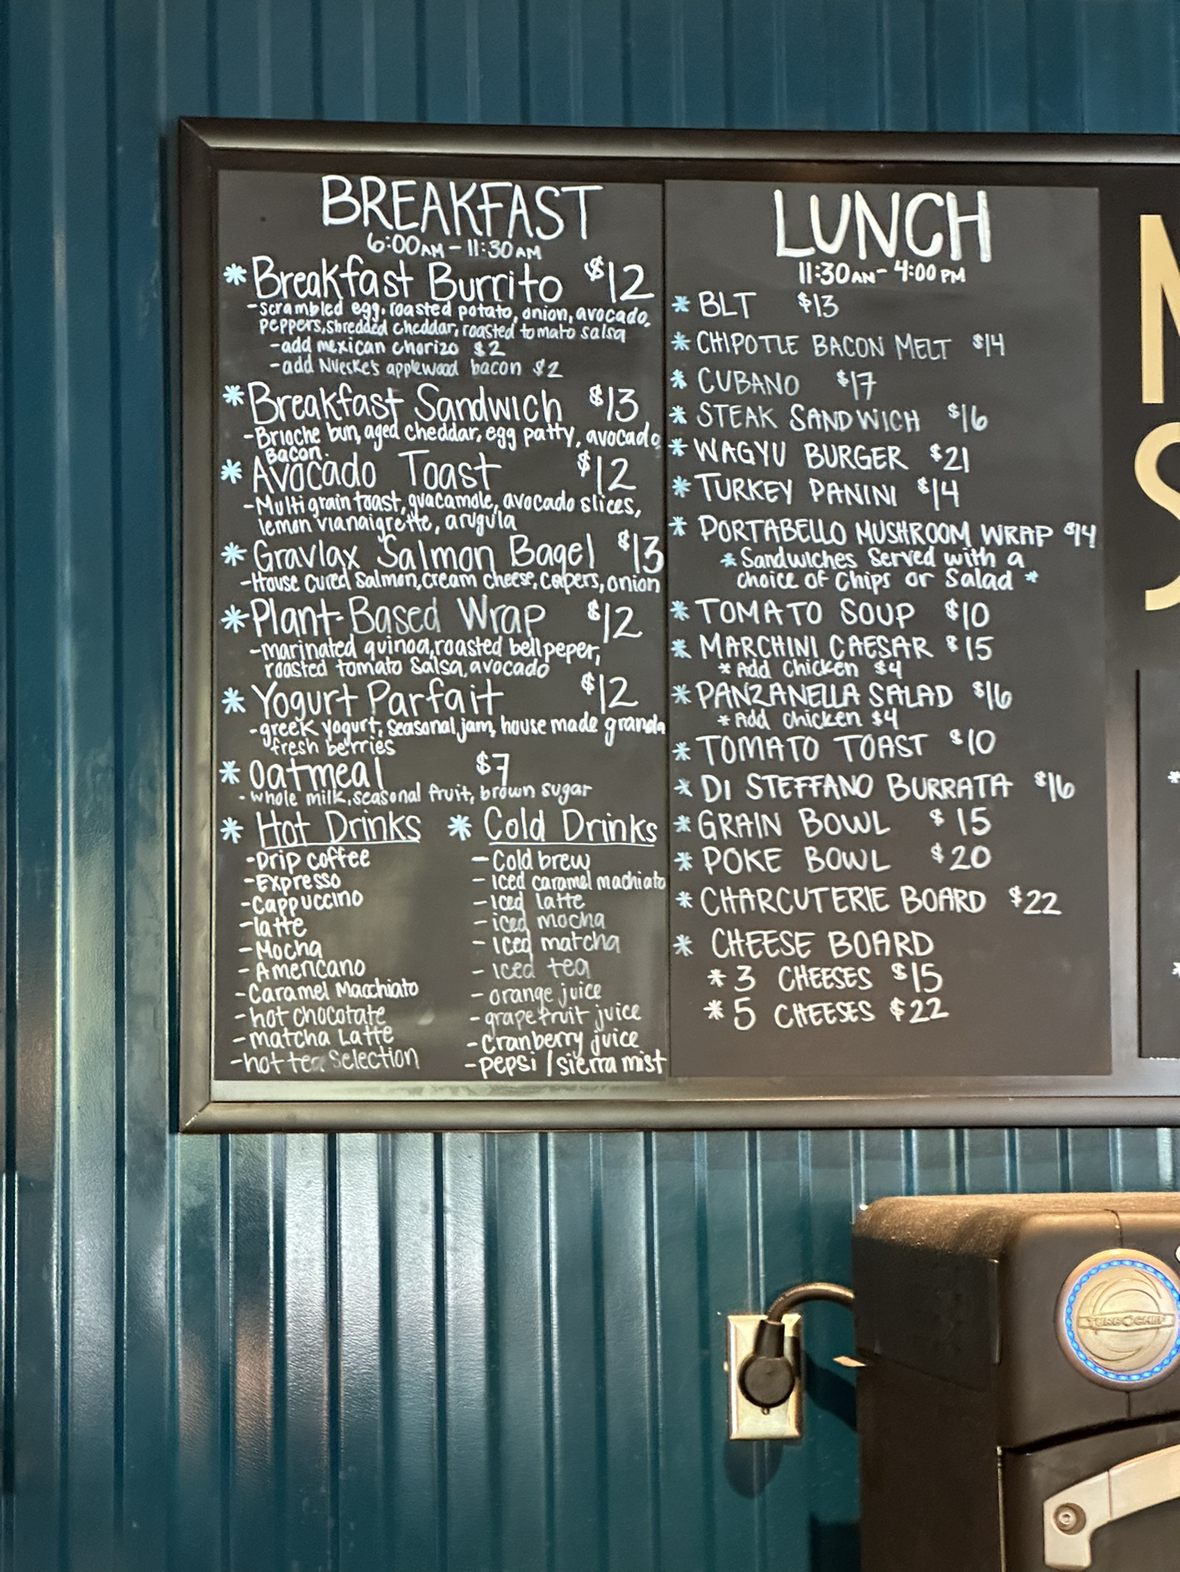 BREAKFAST
6:00AM - 11:30AM
* Breakfast Burrito $12
-scrambled egg, roasted potato, onion, avocado,
peppers, shredded cheddar, roasted tomato salsa
-add mexican chorizo $2
-add Nueske's applewood bacon $2
* Breakfast Sandwich $13
-Brioche bun, aged cheddar, egg patty, avocado
Bacon.
* Avocado Toast $12
-Multi grain toast, guacamole, avocado slices,
lemon vianaigrette, arugula
* Gravlax Salmon Bagel $13
-House cured Salmon, cream cheese, capers, onion
* Plant-Based Wrap $12
-marinated quinoa, roasted bell peper,
roasted tomato salsa, avocado
* Yogurt Parfait $12
-greek yogurt, seasonal jam, house made granola
fresh berries
* Oatmeal $7
- whole milk, seasonal fruit, brown sugar
* Hot Drinks
-Drip coffee
-Expresso
-Cappuccino
-latte
-Mocha
-Americano
-Caramel Macchiato
-hot chocolate
-matcha Latte
-hot tea Selection
* Cold Drinks
- Cold brew
- Iced caramel machiato
- iced latte
- iced mocha
- Iced matcha
- iced tea
- orange juice
- grapefruit juice
- Cranberry juice
- pepsi / sierra mist
LUNCH
11:30AM - 4:00 PM
* BLT $13
* CHIPOTLE BACON MELT $14
* CUBANO $17
* STEAK SANDWICH $16
* WAGYU BURGER $21
* TURKEY PANINI $14
* PORTABELLO MUSHROOM WRAP $14
* Sandwiches Served with a
choice of Chips or Salad *
* TOMATO SOUP $10
* MARCHINI CAESAR $15
* Add Chicken $4
* PANZANELLA SALAD $16
* Add Chicken $4
* TOMATO TOAST $10
* DI STEFFANO BURRATA $16
* GRAIN BOWL $15
* POKE BOWL $20
* CHARCUTERIE BOARD $22
* CHEESE BOARD
* 3 CHEESES $15
* 5 CHEESES $22
TURBOCHEF